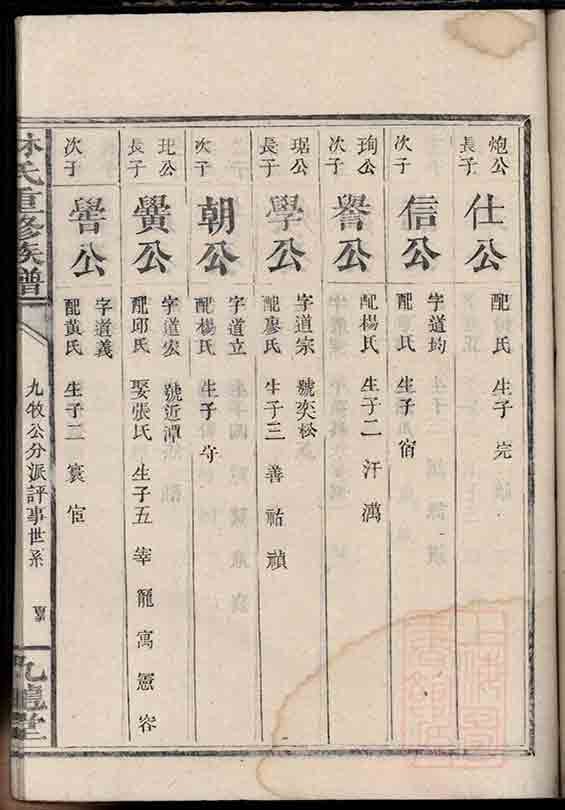 炮公長子
仕公
配 氏 生子 完
次子
信公
字道均
配 氏 生子 宿
珣公次子
譽公
配楊氏 生子二 汗 澫
琚公長子
學公
字道宗 號奕松
配廖氏 生子三 善 祐 禎
次子
朝公
字道立
配楊氏 生子 守
玭公長子
黌公
字道宏 號近潭
配邱氏 娶張氏 生子五 宰 寵 寓 憲 容
次子
譽公
字道義
配黃氏 生子二 寰 宦
林氏重修族譜
九牧公分派評事世系
九龍堂